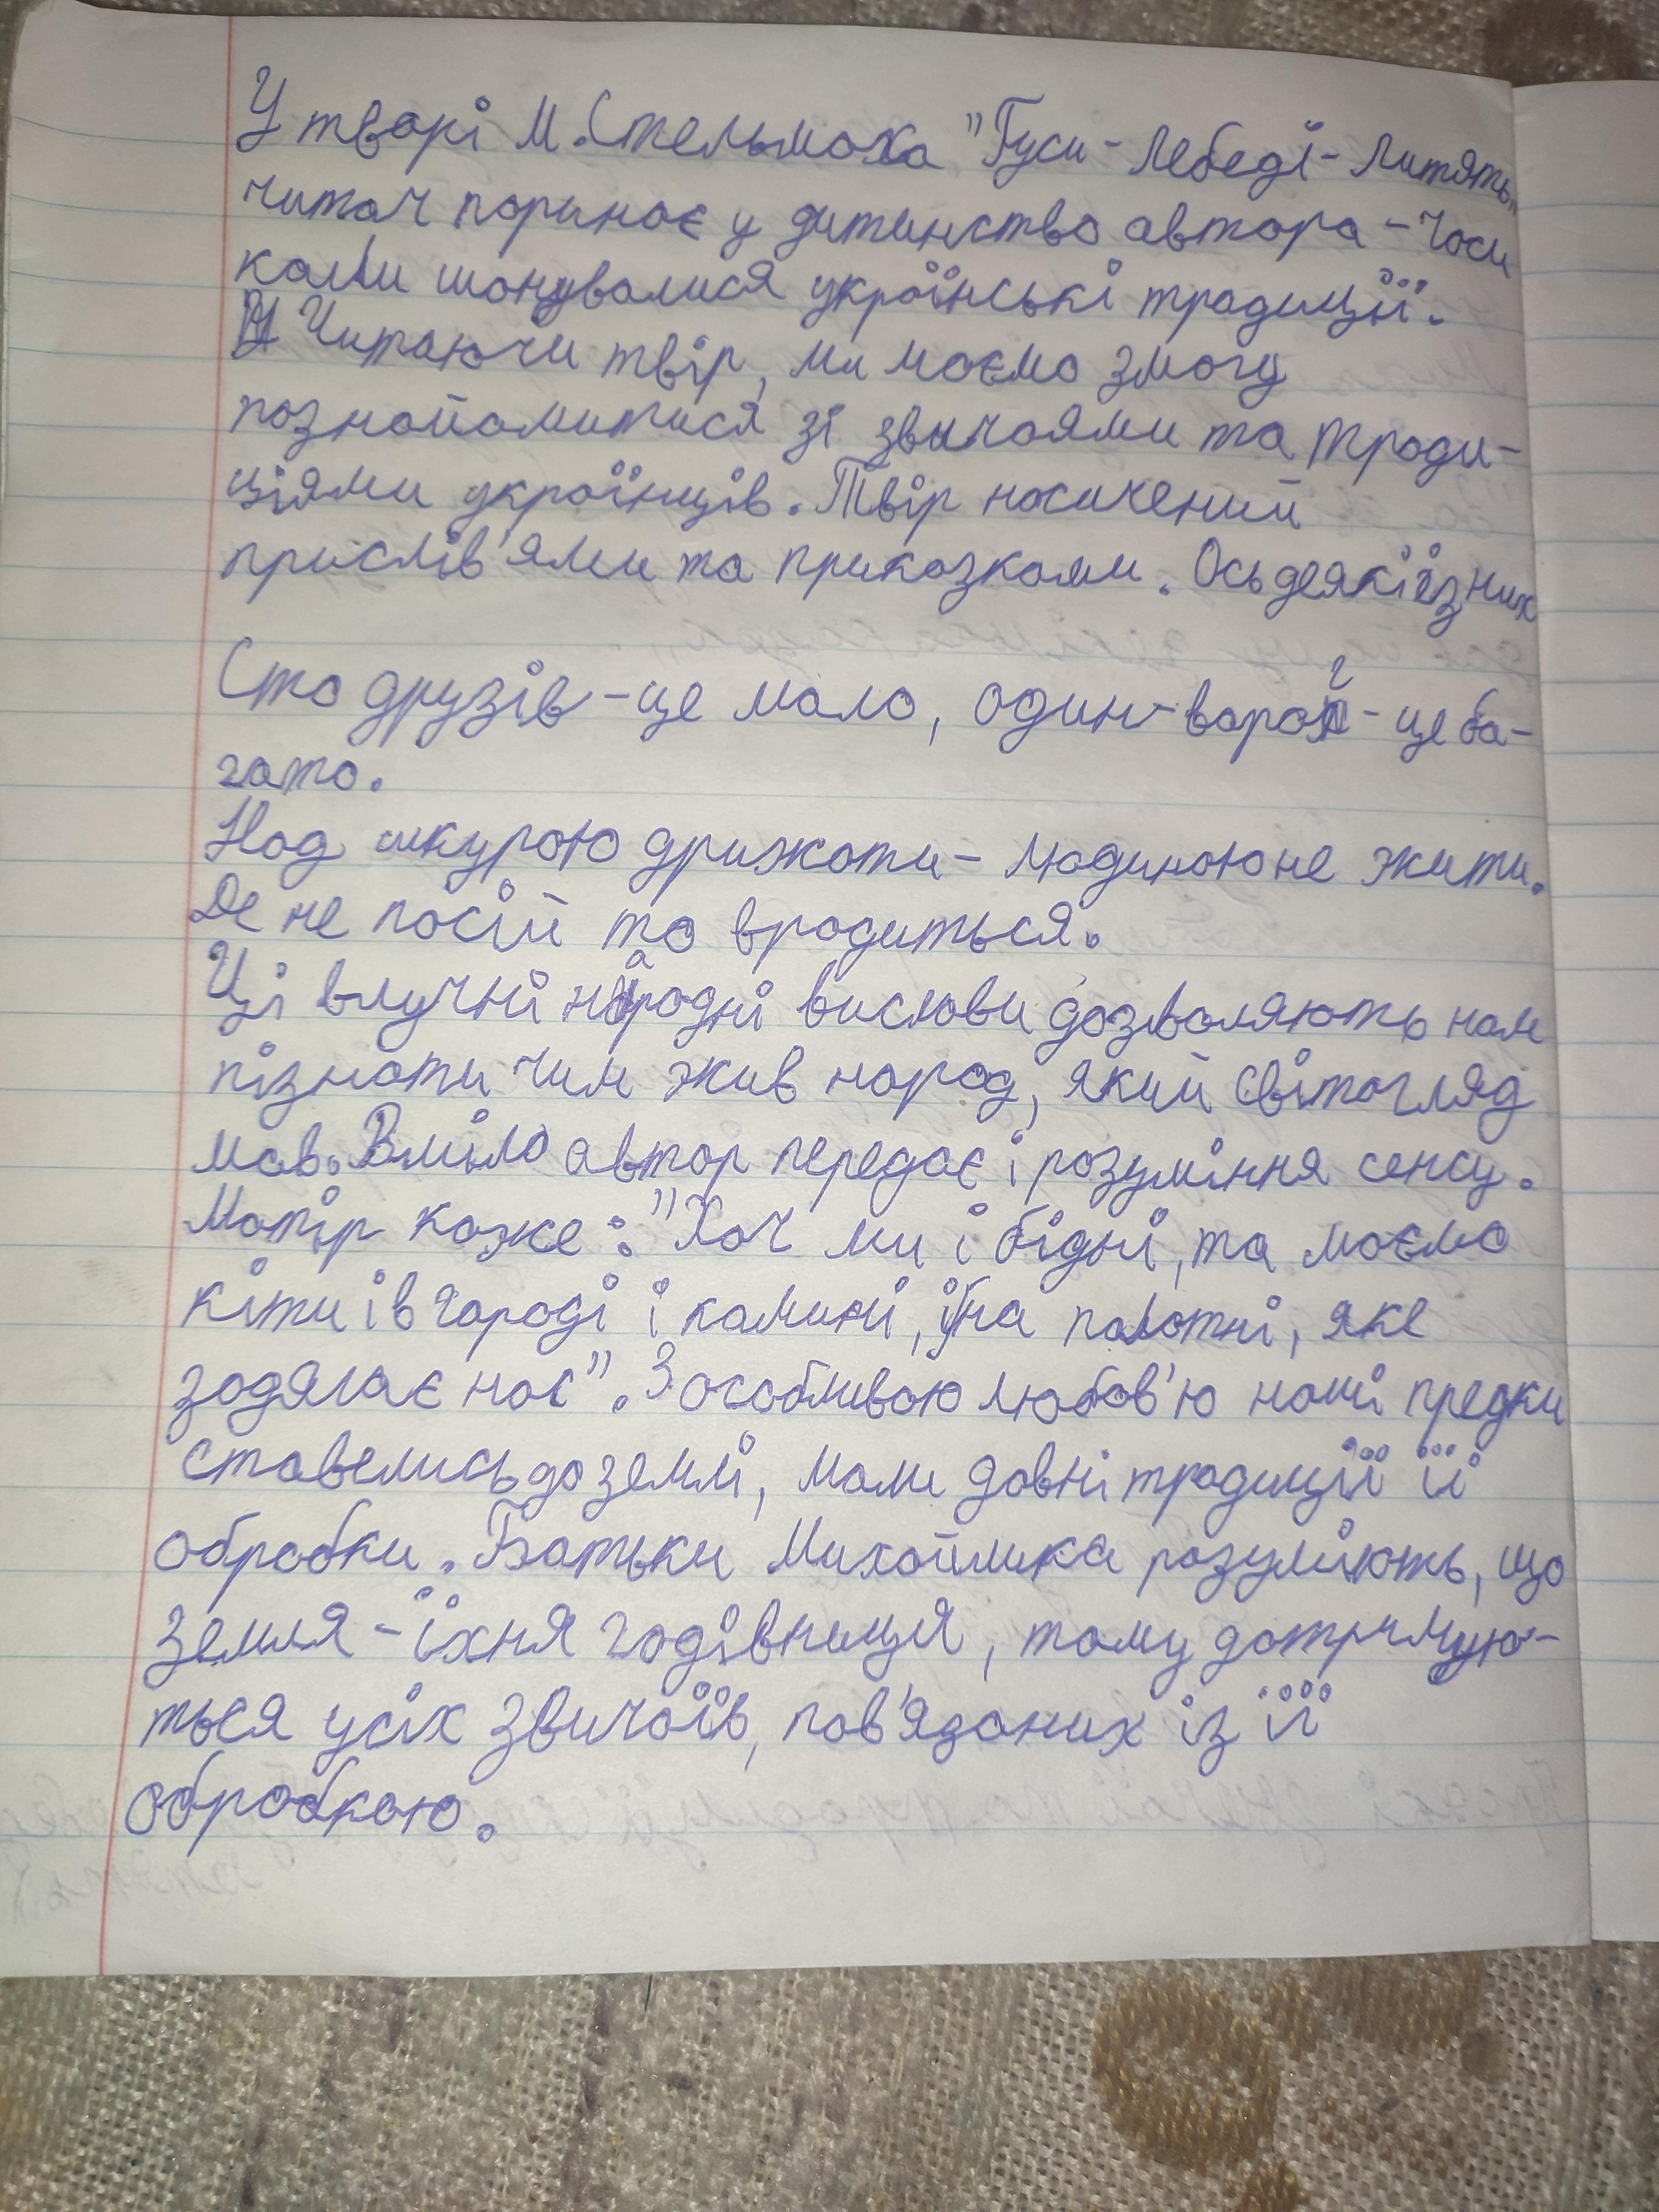 У творі М.Стельмаха "Гуси-Лебеді-Литять"
читач поринає у дитинство автора - Часи
коли шонувалися українські традиції.
Читаючи твір, ми маємо змогу
познайомитися зі звичаями та тради-
ціями українців. Твір насичений
прислів'ями та приказками. Ось деякі із них
Сто друзів - це мало, один-ворог - це ба-
гато.
Над шкурою дрижати - людиною не жити.
Де не посій то вродиться.
Ці влучні народні вислови дозволяють нам
пізнати чим жив народ, який світогляд
мав. Вміло автор передає і розуміння сенсу.
Матір каже: "Хоч ми і бідні, та маємо
кіти і в городі і камині, і на полотні, яке
зодягає нас". З особливою любов'ю наші предки
ставелись до землі, мали давні традиції її
обробки. Батьки Михайлика розуміють, що
земля - їхня годівниця, тому дотримую-
ться усіх звичаїв, пов'язаних із її
обробкою.